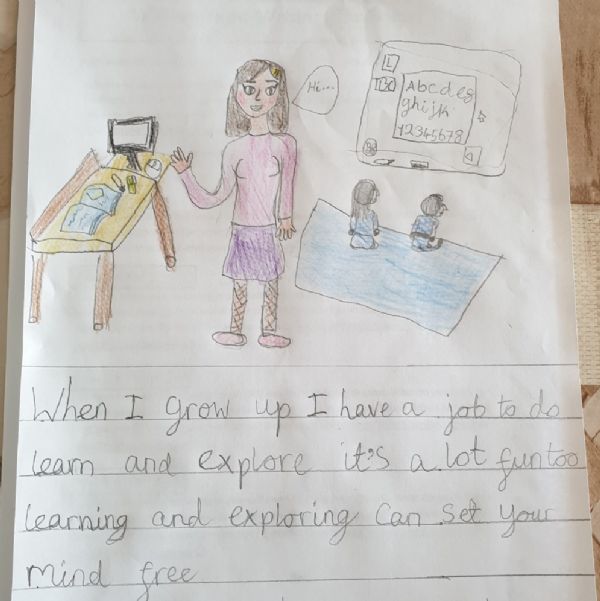 Hi...
Abcdefg
ghijk
12345678
When I grow up I have a job to do
learn and explore it's a lot fun too
learning and exploring Can set your
mind free